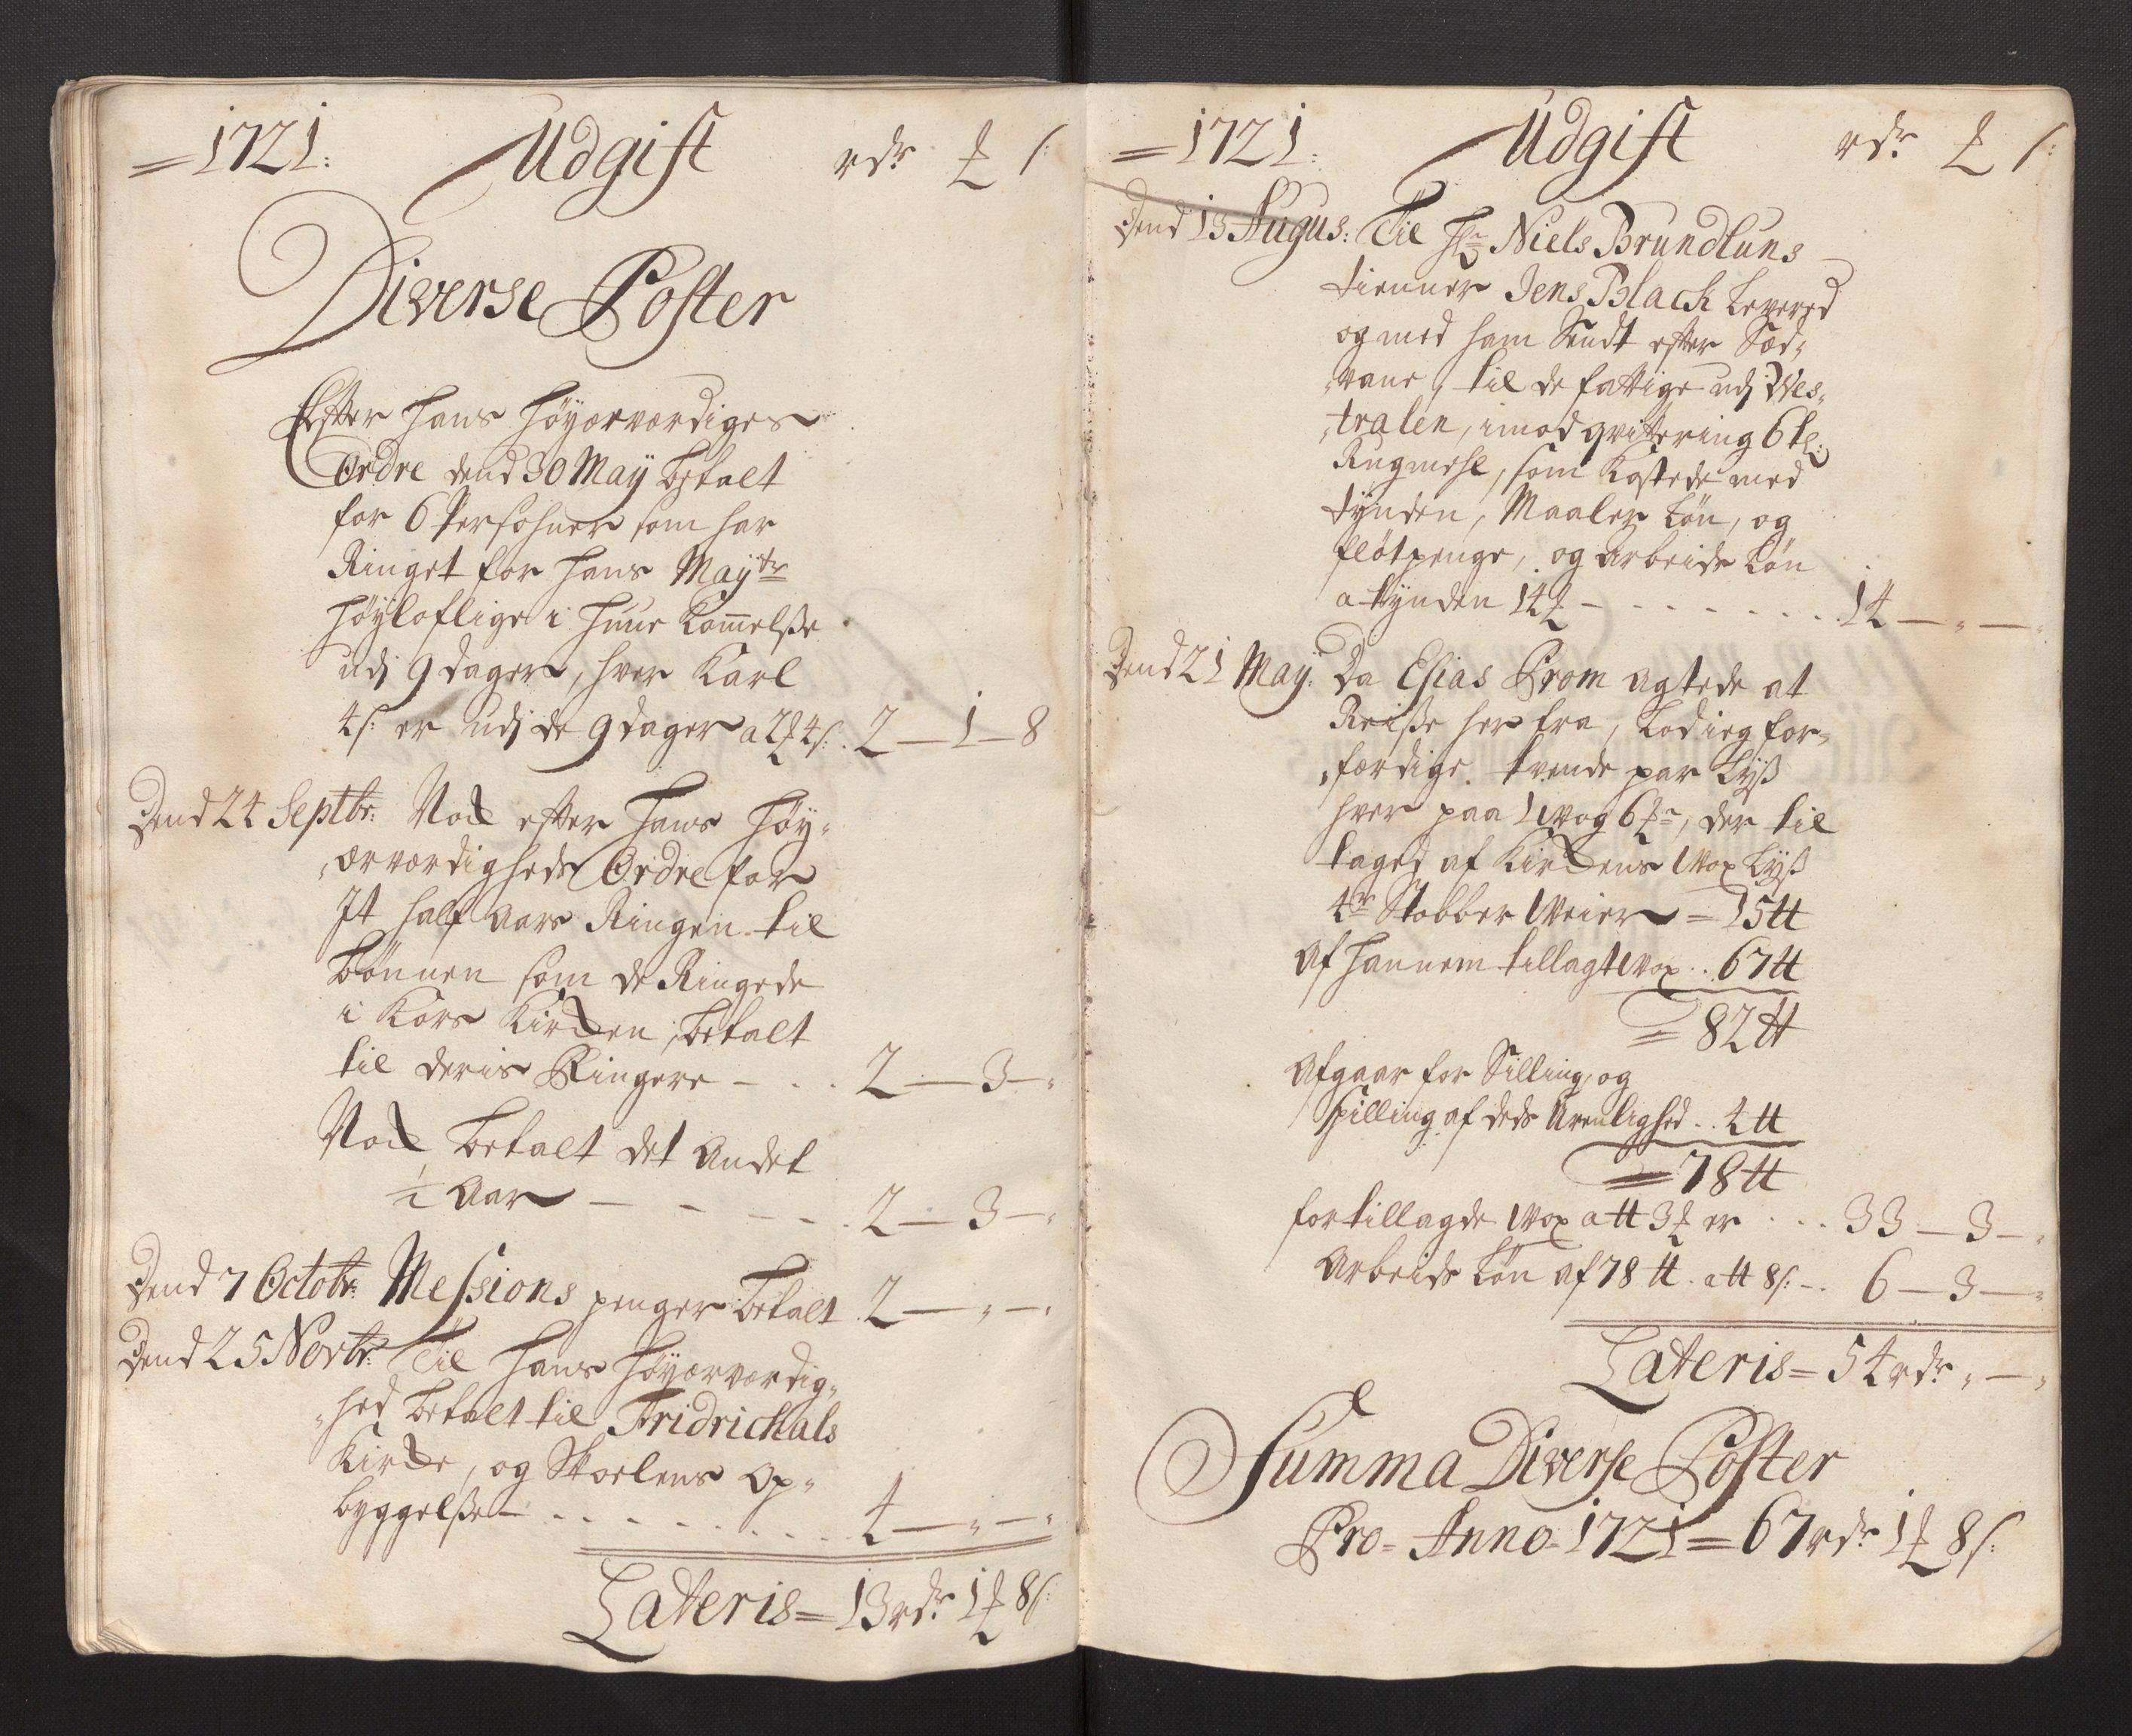 =1721: Udgift rdr ₰ s:
Diverse Poster
Effter Hans Høyærværdiges
Ordre dend 30 May betalt
for 6 Persohner som har
Ringet for Hans Mayts
Høyloflige i Huue Kom̄elsse
udj 9 dager, hver Karl
4 s: er udj de 9 dager a 2 ₰ 4 s: . 2 — 1 — 8
Dend 24 Septbr: Nock efter Hans Høy-
ærværdigheds Ordre for
It half Aars Ringen til
Bønnen som de Ringede
i Kors Kircken, betalt
til deris Ringere - . . . 2 — 3 — "
Nock betalt det Andet
½ Aar — - - - - . 2 — 3 — "
Dend 7 Octobr: Messions penger betalt . 2 — " — "
Dend 25 Novbr: Til Hans Høyærværdig-
hed betalt til Fridrichals
Kircke, og Skoelens Op-
byggelsse - . . . . . . . . 4 — " — "
Lateris = 13 rdr 1 ₰ 8 s:
=1721: Udgift rdr ₰ s:
Dend 13 Augus: Til Hr Niels Brundluns
tienner Jens Blach Levered
og med ham Sendt efter Sæd-
vane, til de fattige udj Wes-
tralen, imod qvittering 6 tr:
Rugmehl, som kostede med
tynden, Maaler Løn, og
fløtpenge, og arbeids Løn
a tynden 14 ₰ - - - - - - . . . 14 — " — "
Dend 21 May: Da Elias Prom agtede at
Reisse her fra, Lod ieg for-
færdige tvende par Lyss
hver paa 1 wog 6 ₰r, der til
taged af Kirckens Wox Lyss
4re Stobber Weier = 15 ℔
Af Hannem tillagt Wox . . 67 ℔
= 82 ℔
Afgaar for Silling, og
spilling af deds Urenlighed . . 4 ℔
= 78 ℔
for tillagde Wox a ℔ 3 ₰ er . . . 33 — 3 — "
Arbeids Løn af 78 ℔ . a ℔ 8 s: - . 6 — 3 — "
Lateris = 54 rdr " — "
Summa Diverse Poster
Pro = Anno = 1721 = 67 rdr 1 ₰ 8 s: